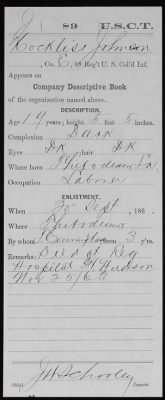 J 89 U.S.C.T.
Hockliss Johnson
, Co. E, 89 Reg't U. S. Col'd Inf.
Appears on
Company Descriptive Book
of the organization named above.
DESCRIPTION.
Age 19 years; height 5 feet 5 inches.
Complexion Dark
Eyes Dk; hair Dk
Where born Thibodeaux, La
Occupation Laborer
ENLISTMENT.
When Sept, 186 .
Where Thibodeaux
By whom Cunningham; term 3 y'rs.
Remarks: Died at Reg
Hospital Ft. Hudson
Nov 25/63
J H Schooley
Copyist.